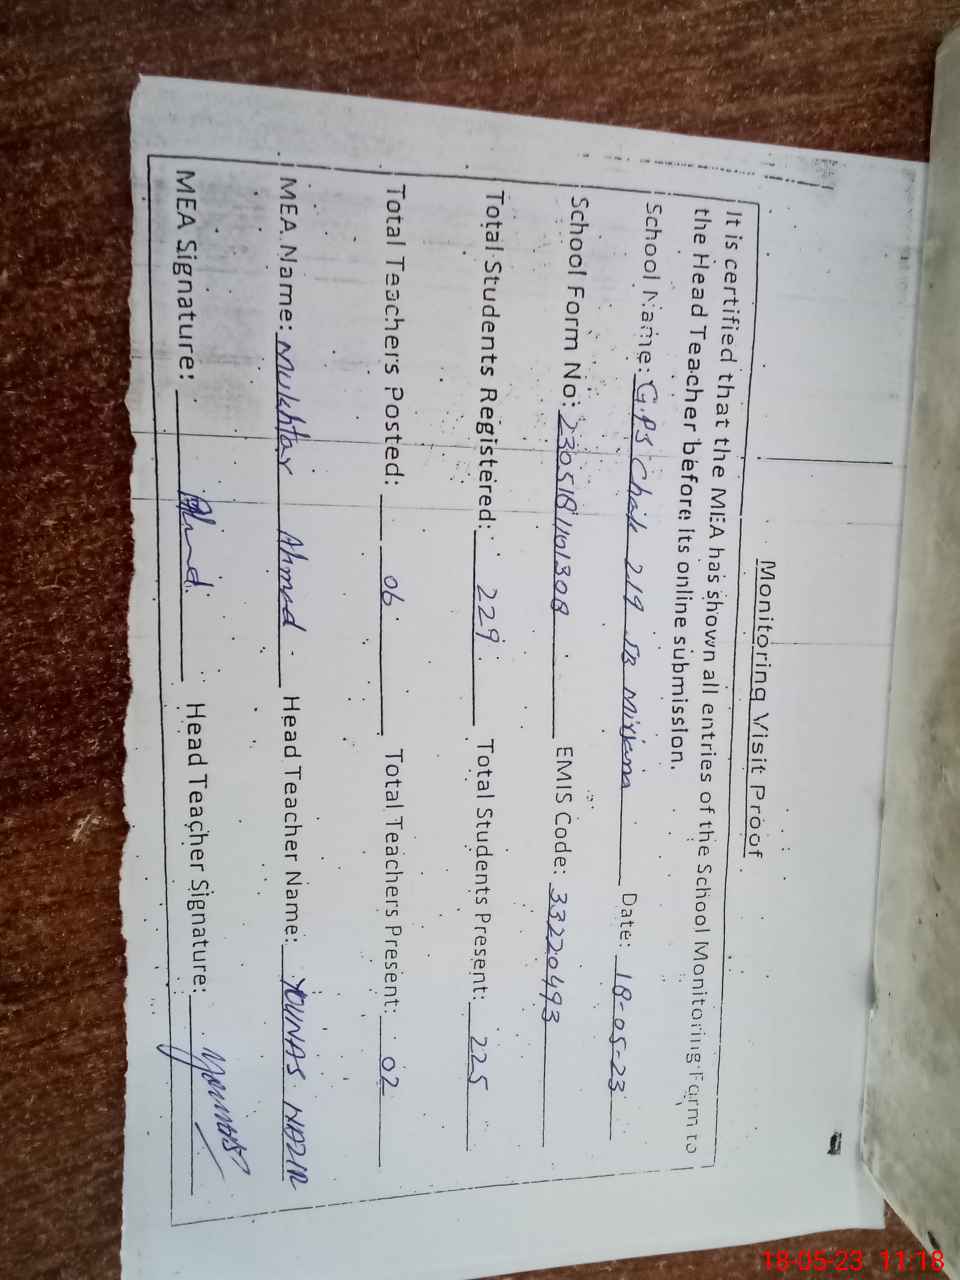 Monitoring Visit Proof
It is certified that the MEA has shown all entries of the School Monitoring Form to
the Head Teacher before its online submission.
School Name: G.P.S Chak 219 Date: 18-05-23
School Form No: 2305181101308 EMIS Code: 33220493
Total Students Registered: 229 Total Students Present: 225
Total Teachers Posted: 06 Total Teachers Present: 02
MEA Name: Mukhtar Ahmad Head Teacher Name: YOUNAS NAZIR
MEA Signature: Head Teacher Signature:
18-05-23 11:18